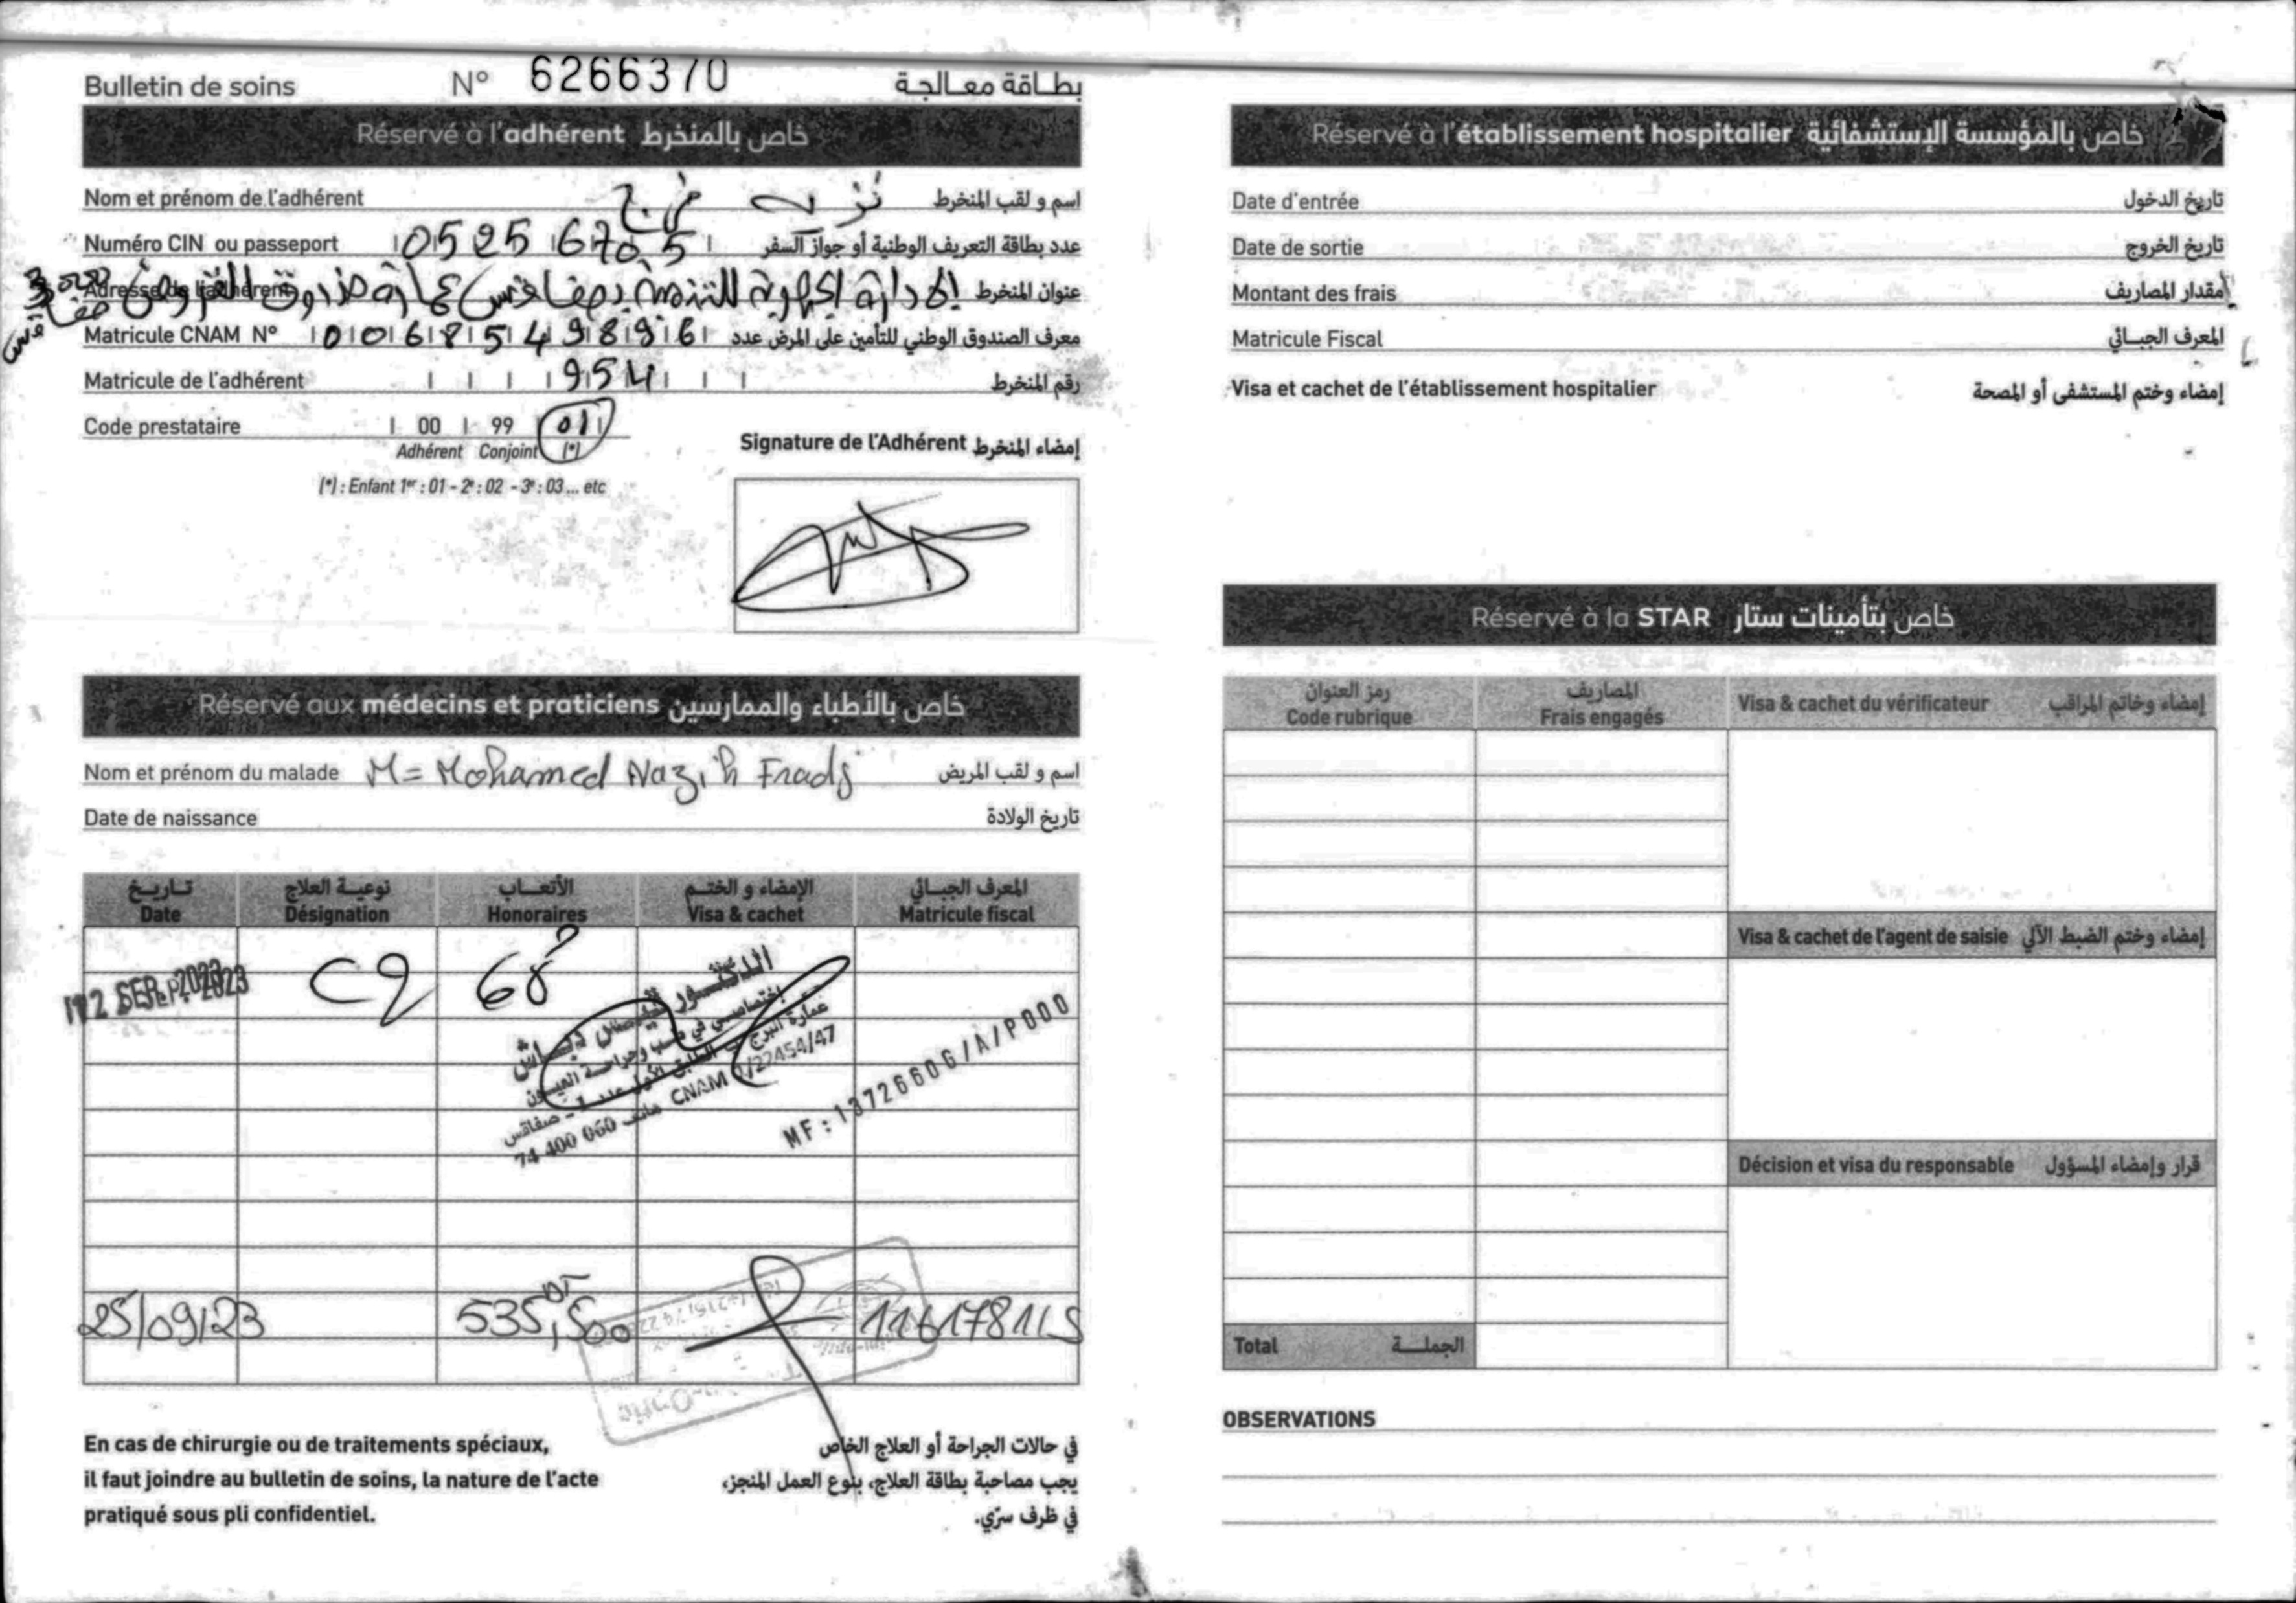 Bulletin de soins N° 6266370 بطاقة معالجة
Réservé à l'adhérent خاص بالمنخرط
Nom et prénom de l'adhérent نزيه فرج اسم و لقب المنخرط
Numéro CIN ou passeport 05256705 عدد بطاقة التعريف الوطنية أو جواز السفر
Adresse de l'adhérent الإدارة الجهوية للتنمية بصفاقس عمارة صندوق القروض صفاقس عنوان المنخرط
Matricule CNAM N° 0068549896 معرف الصندوق الوطني للتأمين على المرض عدد
Matricule de l'adhérent 954 رقم المنخرط
Code prestataire 00 99 01
Adhérent Conjoint (*)
(*) : Enfant 1er : 01 - 2e : 02 - 3e : 03 ... etc
Signature de l'Adhérent إمضاء المنخرط
Réservé aux médecins et praticiens خاص بالأطباء والممارسين
Nom et prénom du malade M= Mohamed Nazih Fradj اسم و لقب المريض
Date de naissance تاريخ الولادة
تاريخ نوعية العلاج الأتعاب الإمضاء و الختم المعرف الجبائي
Date Désignation Honoraires Visa & cachet Matricule fiscal
12 SEP. 2023 C2 60
الدكتور قيس دباش
إختصاصي في طب وجراحة العيون
عمارة البرج الطابق الأول عدد 1 - صفاقس
74 400 060 هاتف CNAM 1/22454/47
MF : 1372660G/A/P000
25/09/23 535,500 DT 1161781/S
Optic
En cas de chirurgie ou de traitements spéciaux,
il faut joindre au bulletin de soins, la nature de l'acte
pratiqué sous pli confidentiel.
في حالات الجراحة أو العلاج الخاص
يجب مصاحبة بطاقة العلاج، بنوع العمل المنجز،
في ظرف سرّي.
Réservé à l'établissement hospitalier خاص بالمؤسسة الإستشفائية
Date d'entrée تاريخ الدخول
Date de sortie تاريخ الخروج
Montant des frais مقدار المصاريف
Matricule Fiscal المعرف الجبائي
Visa et cachet de l'établissement hospitalier إمضاء وختم المستشفى أو المصحة
Réservé à la STAR خاص بتأمينات ستار
رمز العنوان المصاريف
Code rubrique Frais engagés Visa & cachet du vérificateur إمضاء وخاتم المراقب
Visa & cachet de l'agent de saisie إمضاء وختم الضبط الآلي
Décision et visa du responsable قرار وإمضاء المسؤول
Total الجملة
OBSERVATIONS